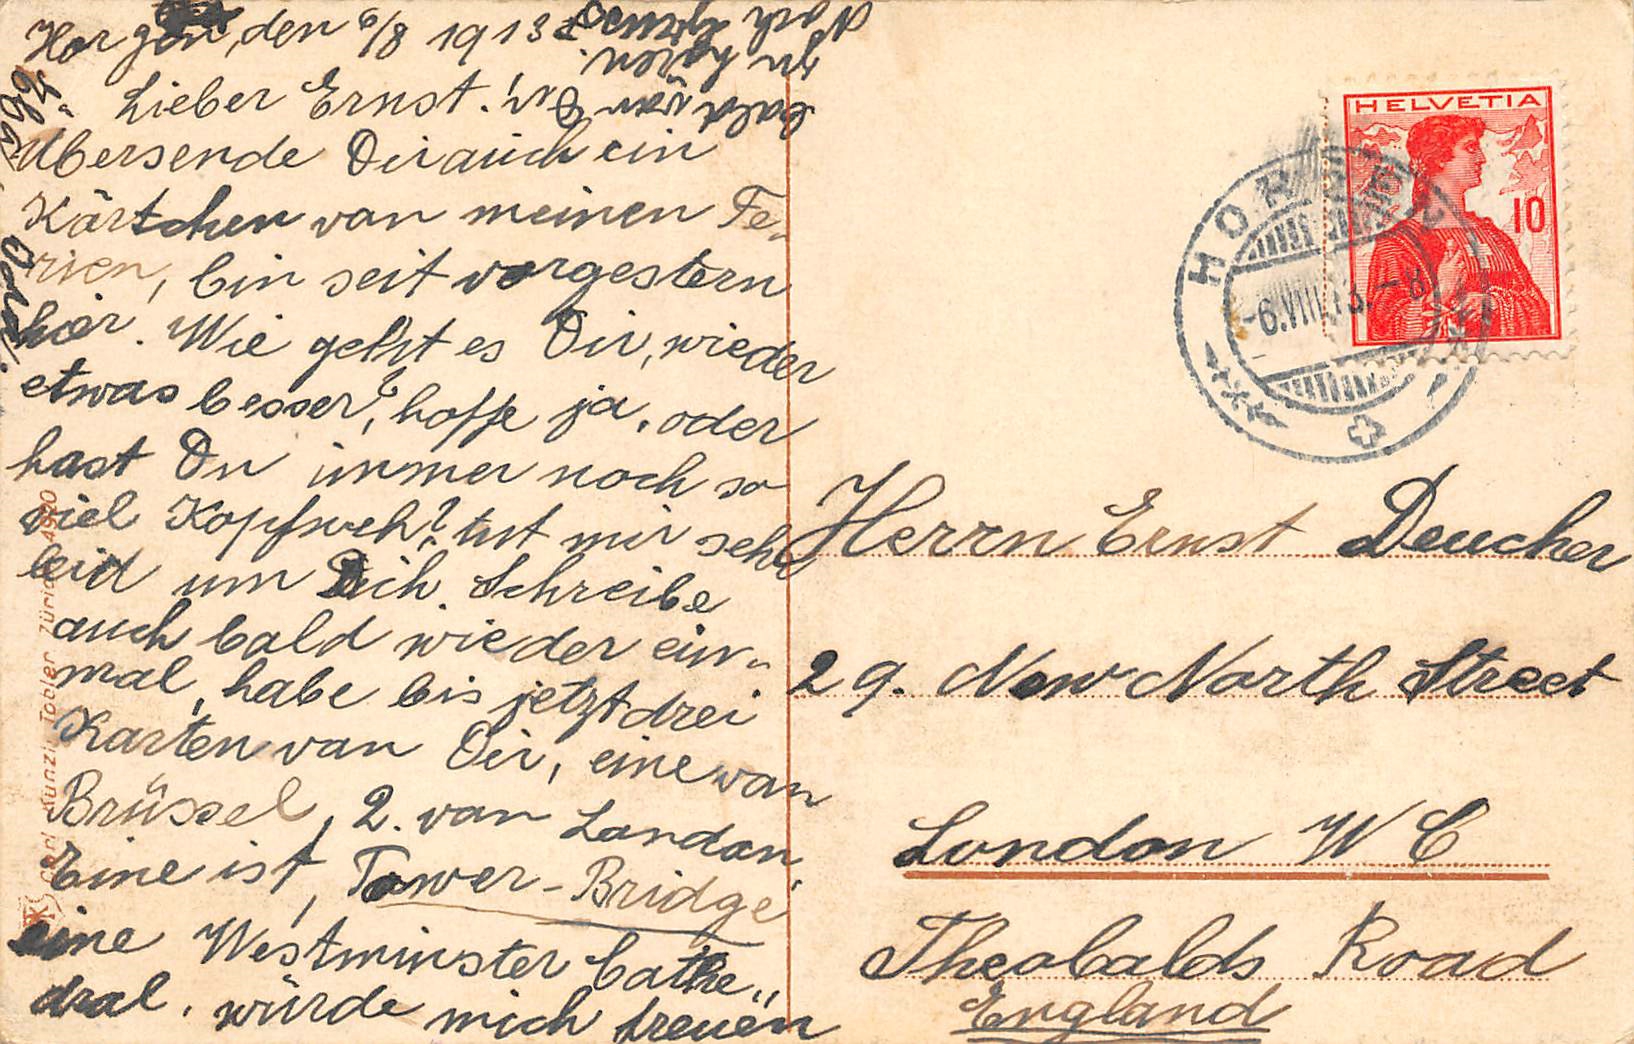 Horgen, den 6/8 1913.
Lieber Ernst!
Übersende Dir auch ein
Kärtchen von meinen Fe-
rien, bin seit vorgestern
hier. Wie geht es Dir, wieder
etwas besser?, hoffe ja, oder
hast Du immer noch so
viel Kopfweh? tut mir sehr
leid um Dich. Schreibe
auch bald wieder ein-
mal, habe bis jetzt drei
Karten von Dir, eine von
Brüssel, 2. von London,
Eine ist, Tower-Bridge
eine Westminster Cathe-
dral. würde mich freuen
bald von Dir
zu hören.
Dora.
Herrn Ernst Deucher
29. New North Street
London W C
Theobalds Road
England
HELVETIA
10
HORGEN
-6.VIII.13.-8
Carl Künzli-Tobler Zürich 4920